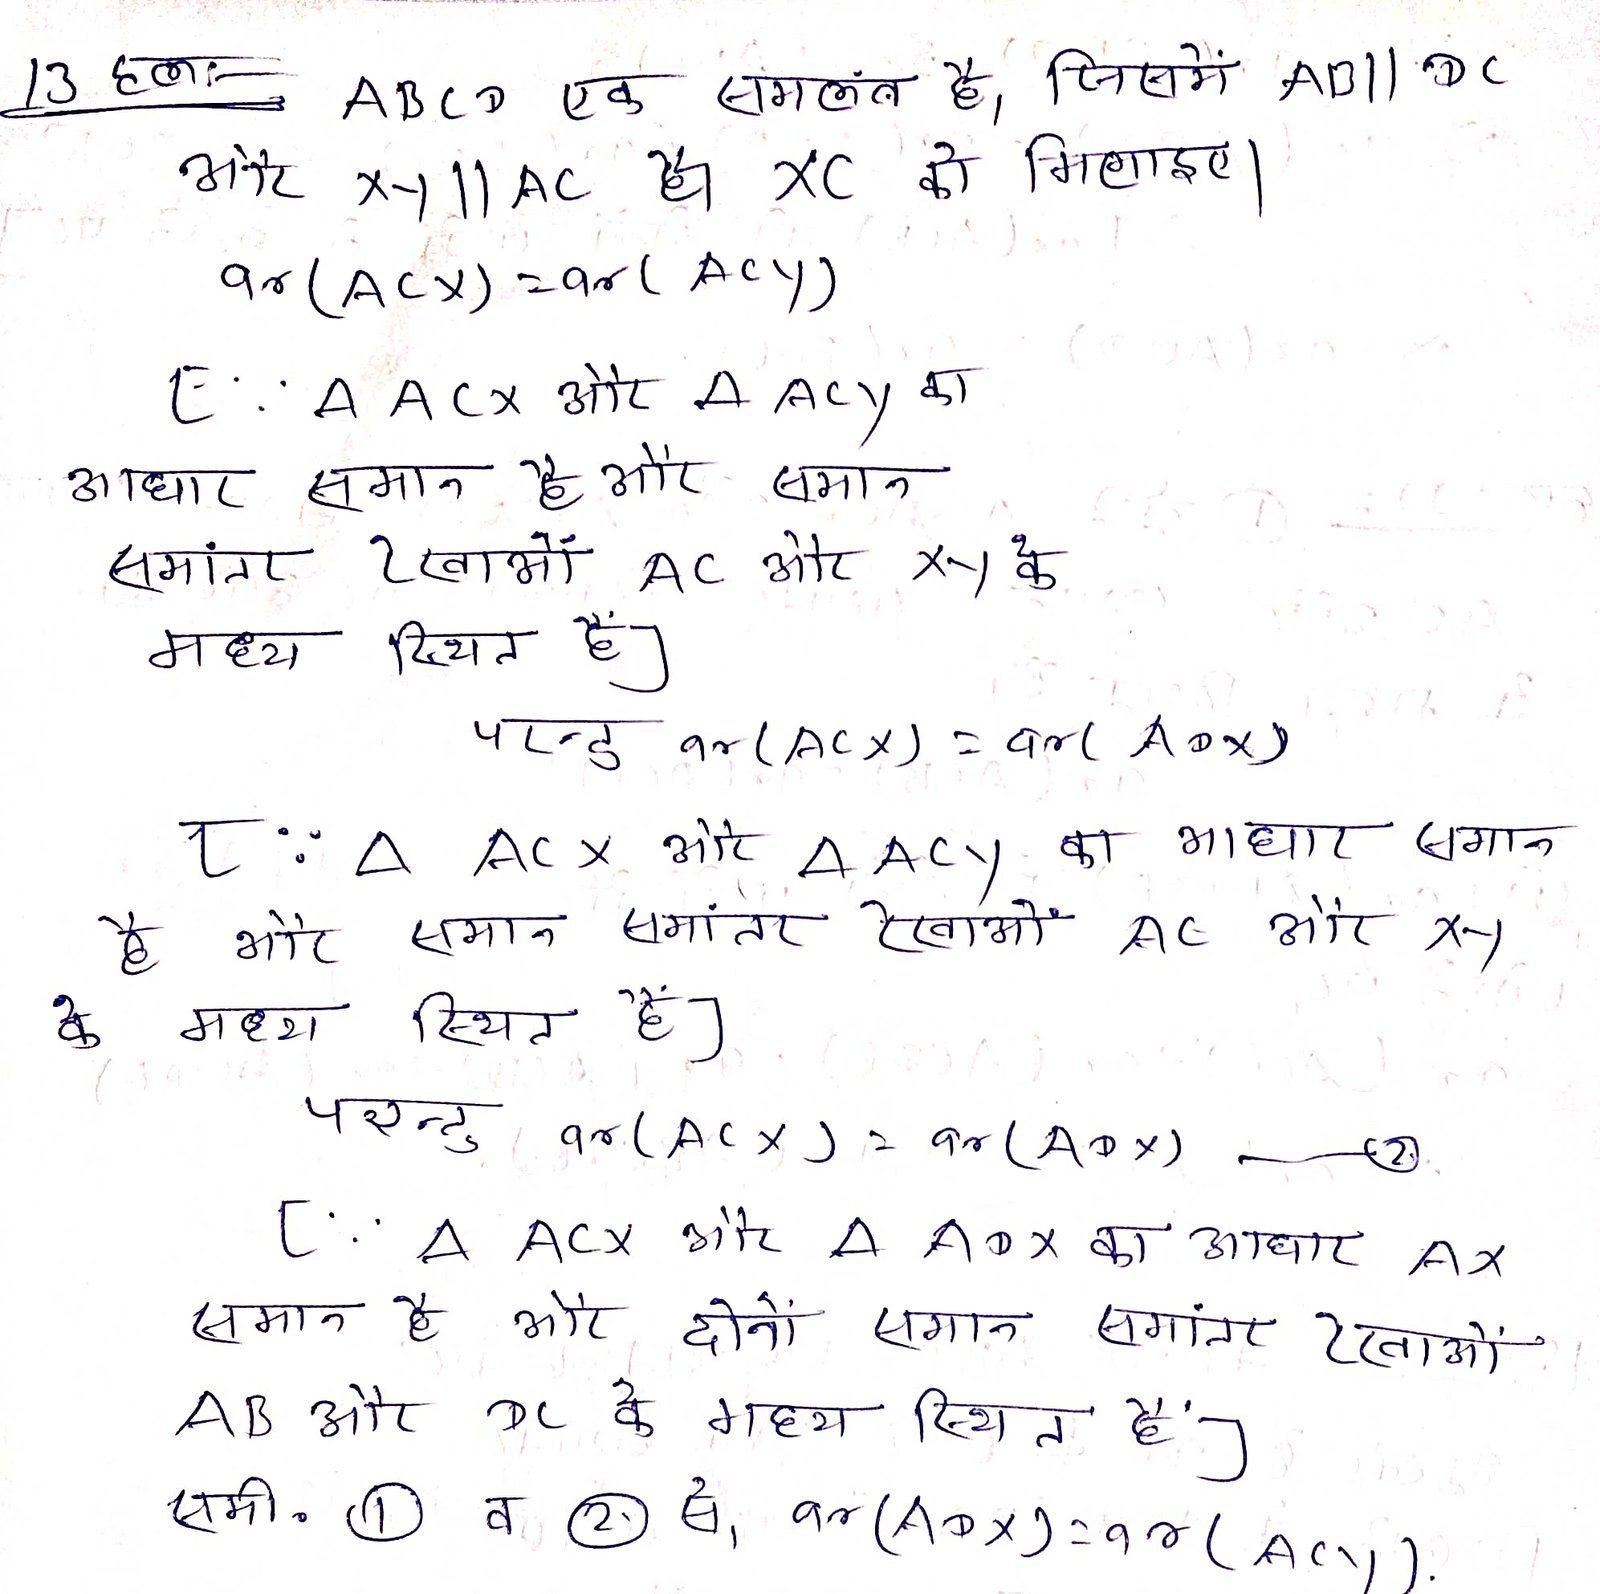 13 हल:-
ABCD एक समलंब है, जिसमें AB||DC
और XY||AC है। XC को मिलाइए।
ar(ACX)=ar(ACY)
[∵ Δ ACX और Δ ACY का
आधार समान है और समान
समांतर रेखाओं AC और XY के
मध्य स्थित हैं]
परन्तु ar(ACX)=ar(ADX)
[∵ Δ ACX और Δ ACY का आधार समान
है और समान समांतर रेखाओं AC और XY
के मध्य स्थित हैं]
परन्तु ar(ACX)=ar(ADX) —②
[∵ Δ ACX और Δ ADX का आधार AX
समान है और दोनों समान समांतर रेखाओं
AB और DC के मध्य स्थित हैं]
समी. ① व ② से, ar(ADX)=ar(ACY).